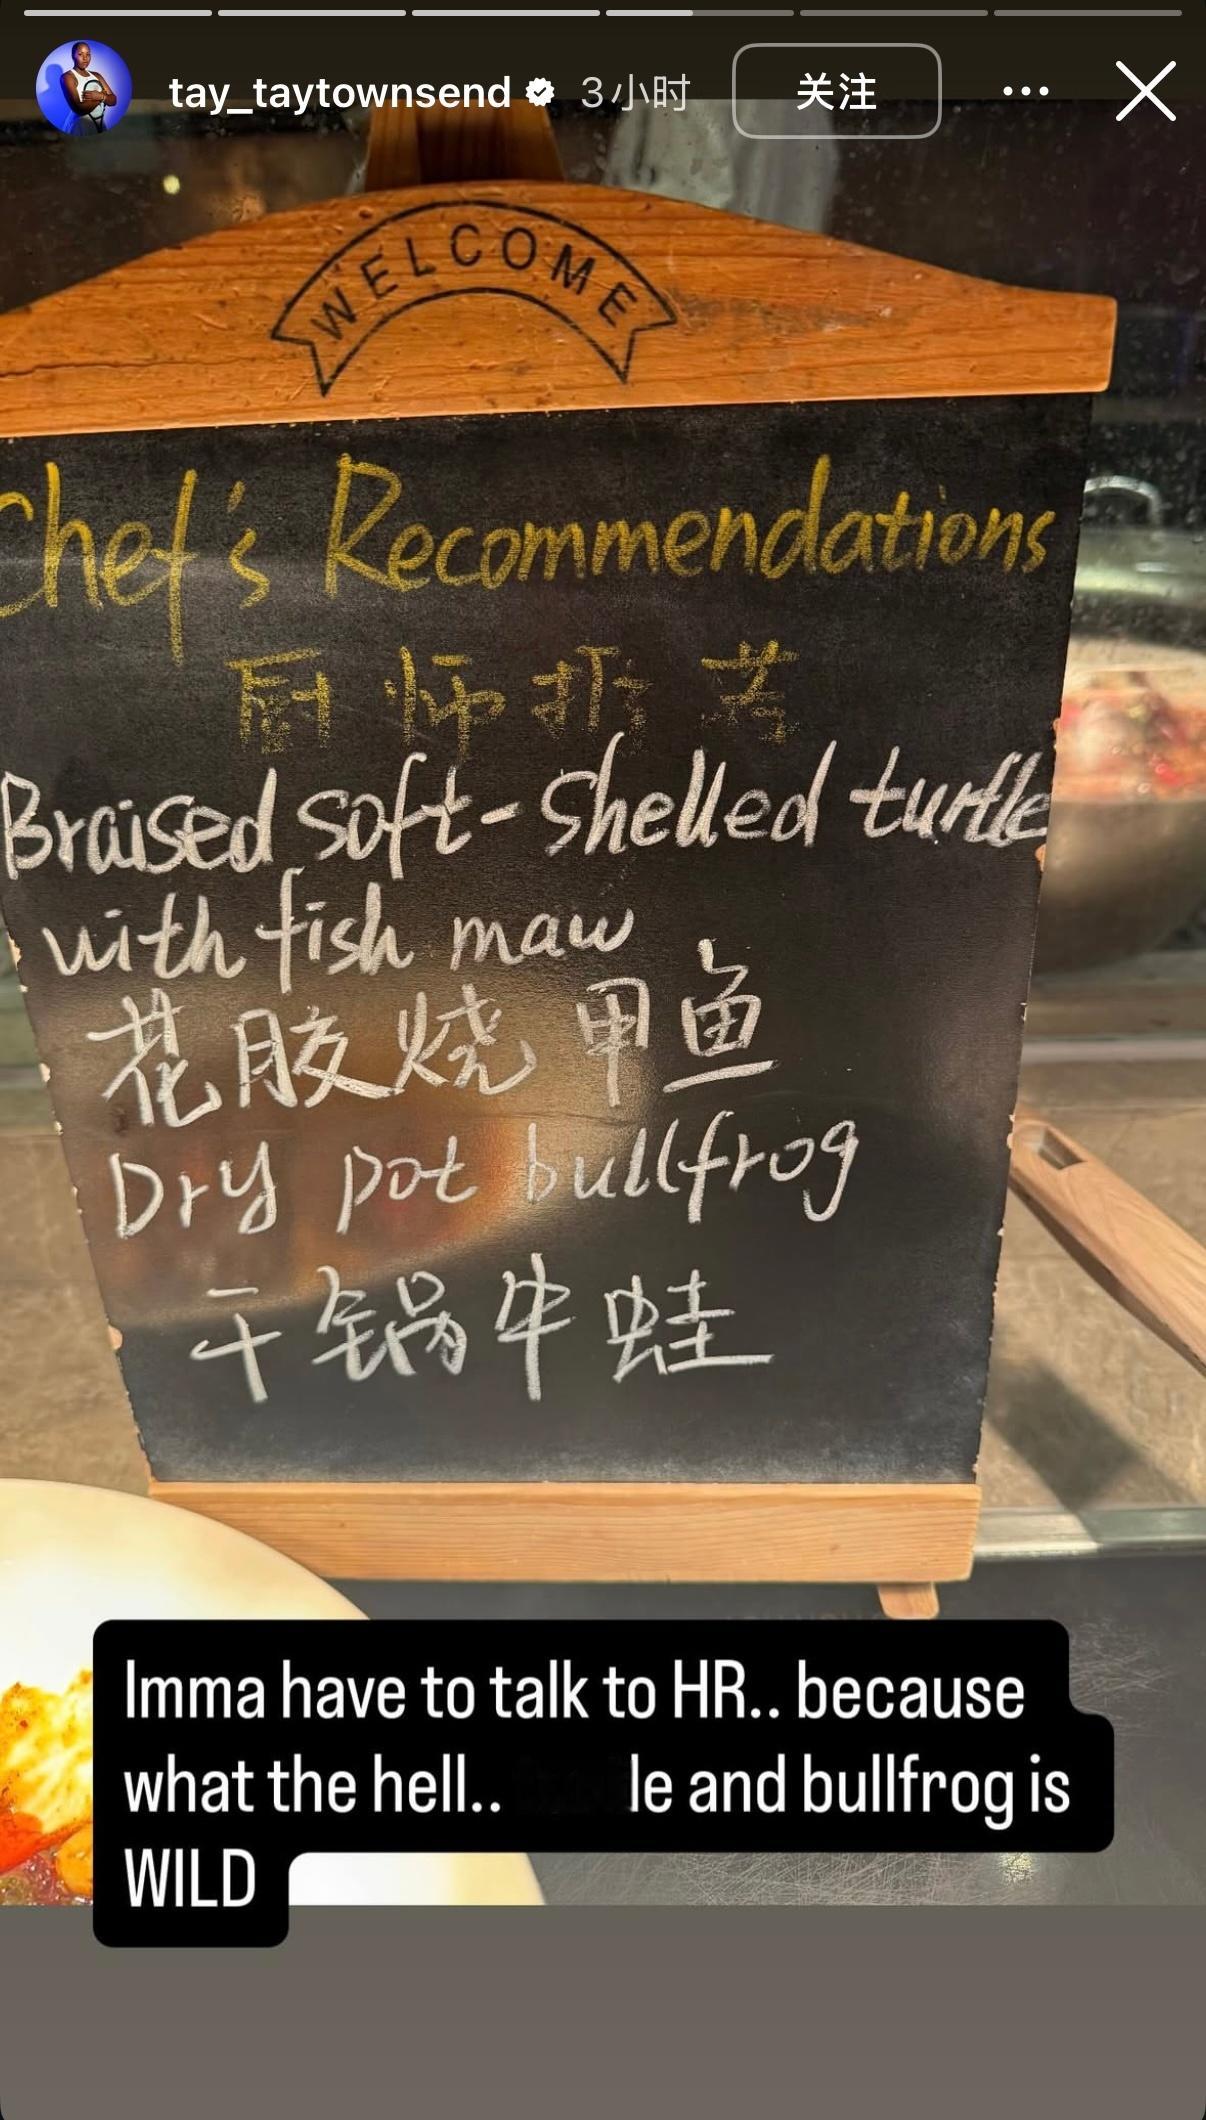 tay_taytownsend 3小时 关注
WELCOME
Chef's Recommendations
厨师推荐
Braised soft-shelled turtle
with fish maw
花胶烧甲鱼
Dry pot bullfrog
干锅牛蛙
Imma have to talk to HR.. because
what the hell.. le and bullfrog is
WILD